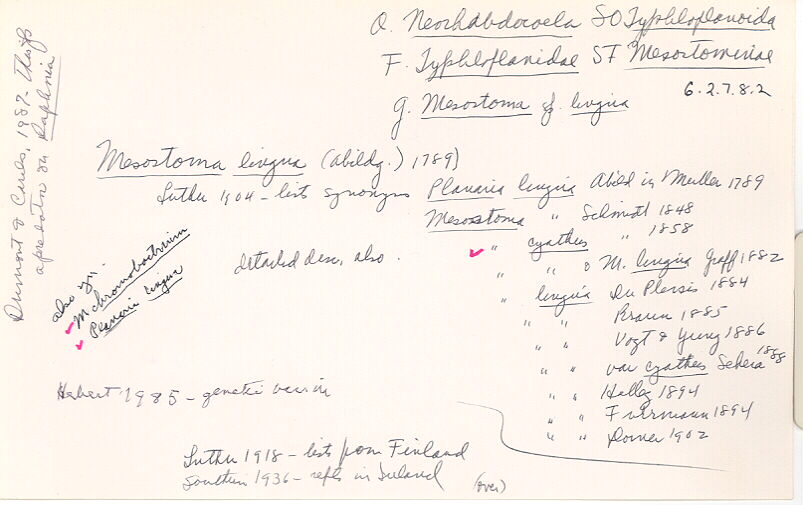 O. Neorhabdocoela SO Typhloplanoida
F. Typhloplanidae SF Mesostominae
6.2.7.8.2
g. Mesostoma cf. lingua
Mesostoma lingua (Abildg.) 1789)
Luther 1904 - lists synonyms Planaria lingua Abild in Muller 1789
Mesostoma " Schmidt 1848
" cyathus " 1858
detailed desc, also.
" " & M. lingua Graff 1882
" lingua Du Plessis 1884
" " Braun 1885
" " Vogt & Yung 1886
" " var cyathus Sekera 1888
" " Hallez 1894
" " Fuhrmann 1894
" " Dorner 1902
also syn.
M chromobactrum
Planaria lingua
Hebert 1985 - genetic
Luther 1918 - lists from Finland
Southern 1936 - refs in Ireland
(over)
Dumont & Carels, 1987
a predator on Daphnia